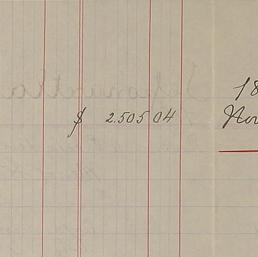 18
$ 2.505 04 Nov